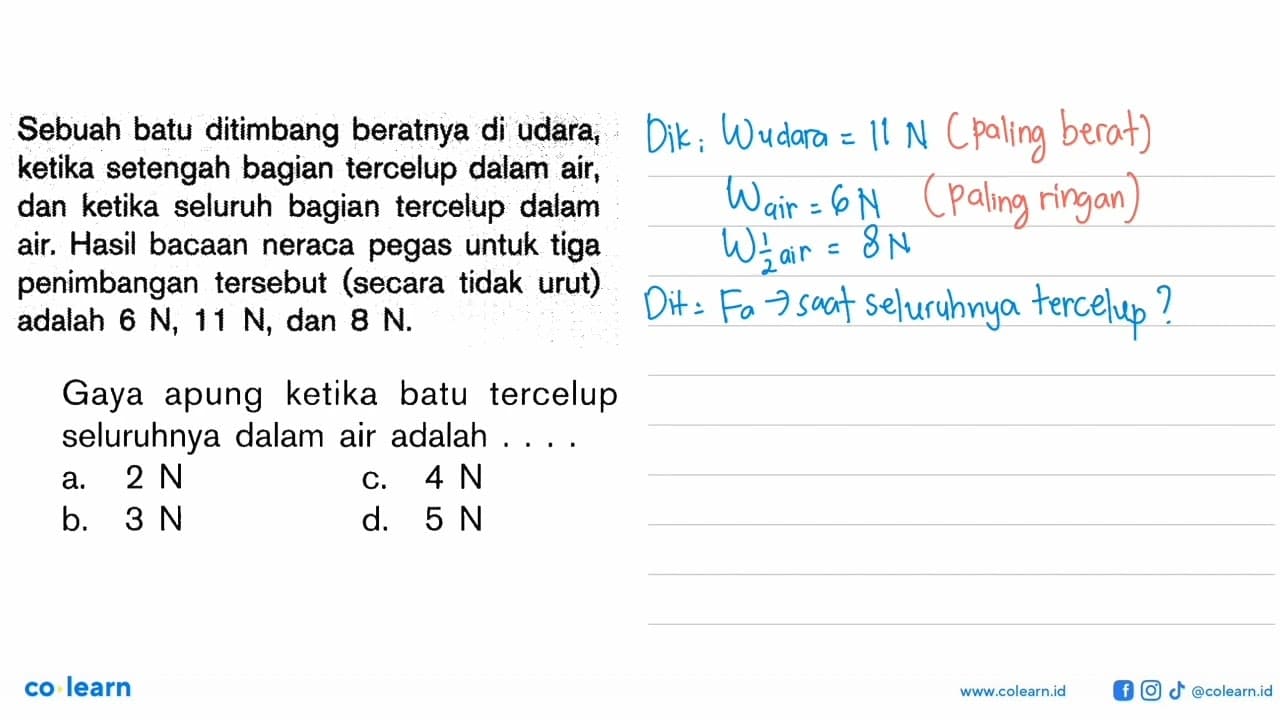 Sebuah batu ditimbang beratnya di udara,
ketika setengah bagian tercelup dalam air,
dan ketika seluruh bagian tercelup dalam
air. Hasil bacaan neraca pegas untuk tiga
penimbangan tersebut (secara tidak urut)
adalah 6 N, 11 N, dan 8 N.
Gaya apung ketika batu tercelup
seluruhnya dalam air adalah . . . .
a. 2 N c. 4 N
b. 3 N d. 5 N
Dik: Wudara = 11 N (paling berat)
Wair = 6 N (paling ringan)
W1/2 air = 8 N
Dit: Fa → saat seluruhnya tercelup?
co learn
www.colearn.id @colearn.id